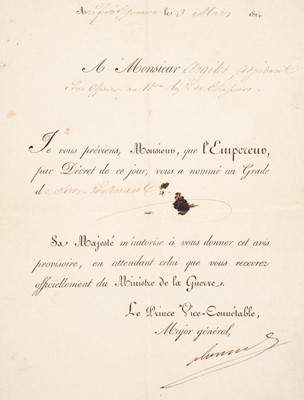 le 3 Mars 181
A Monsieur
Je vous préviens, Monsieur, que l'Empereur,
par Décret de ce jour, vous a nommé au Grade
de Sous-Lieutenant
Sa Majesté m'autorise à vous donner cet avis
provisoire, en attendant celui que vous recevrez
officiellement du Ministre de la Guerre.
Le Prince Vice-Connétable,
Major général,